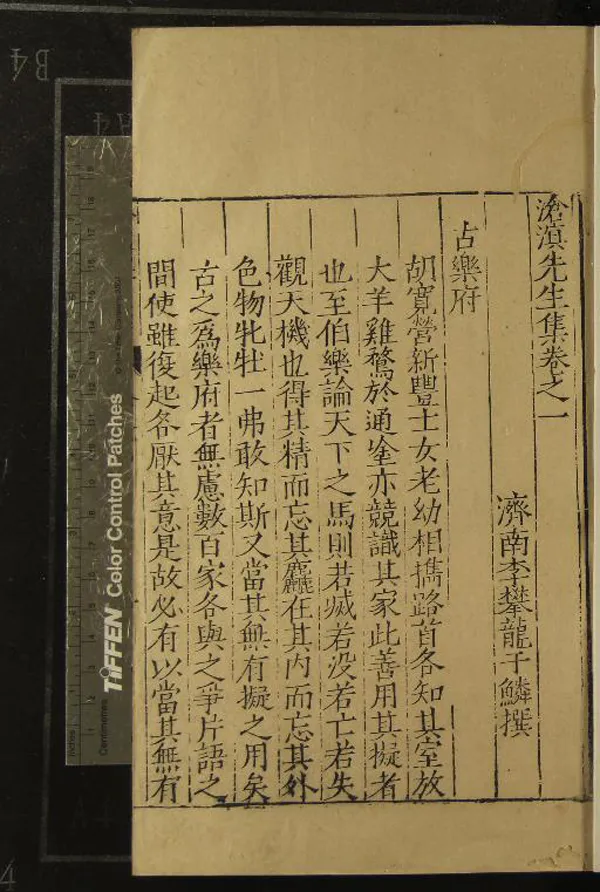 滄溟先生集卷之一
濟南李攀龍于鱗撰
古樂府
胡寬營新豐士女老幼相擕路首各知其室放
犬羊雞鶩於通塗亦競識其家此善用其擬者
也至伯樂論天下之馬則若滅若没若亡若失
觀天機也得其精而忘其麤在其内而忘其外
色物牝牡一弗敢知斯又當其無有擬之用矣
古之為樂府者無慮數百家各與之爭片語之
間使雖復起各厭其意是故必有以當其無有
TIFFEN Color Control Patches
Centimetres
Inches
B4
A4